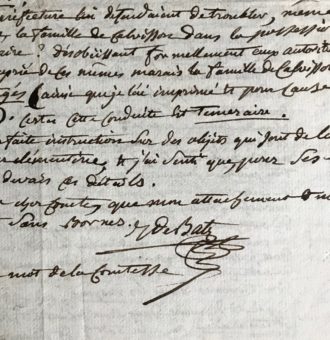 préfecture lui défendaient de troubler, même
la famille de Calvisson dans la possession
désobéissant formellement aux autorités
de ces mêmes marais la famille de Calvisson
ainsi que je l'ai imprimé & pour cause
certes cette conduite est Temeraire.
faite instruction Sur des objets qui sont de la
& j'ai Senti que pour Ses
devais ces détails.
cher Comte, que mon attachement
Sans Bornes. De Batz
mot de la Comtesse